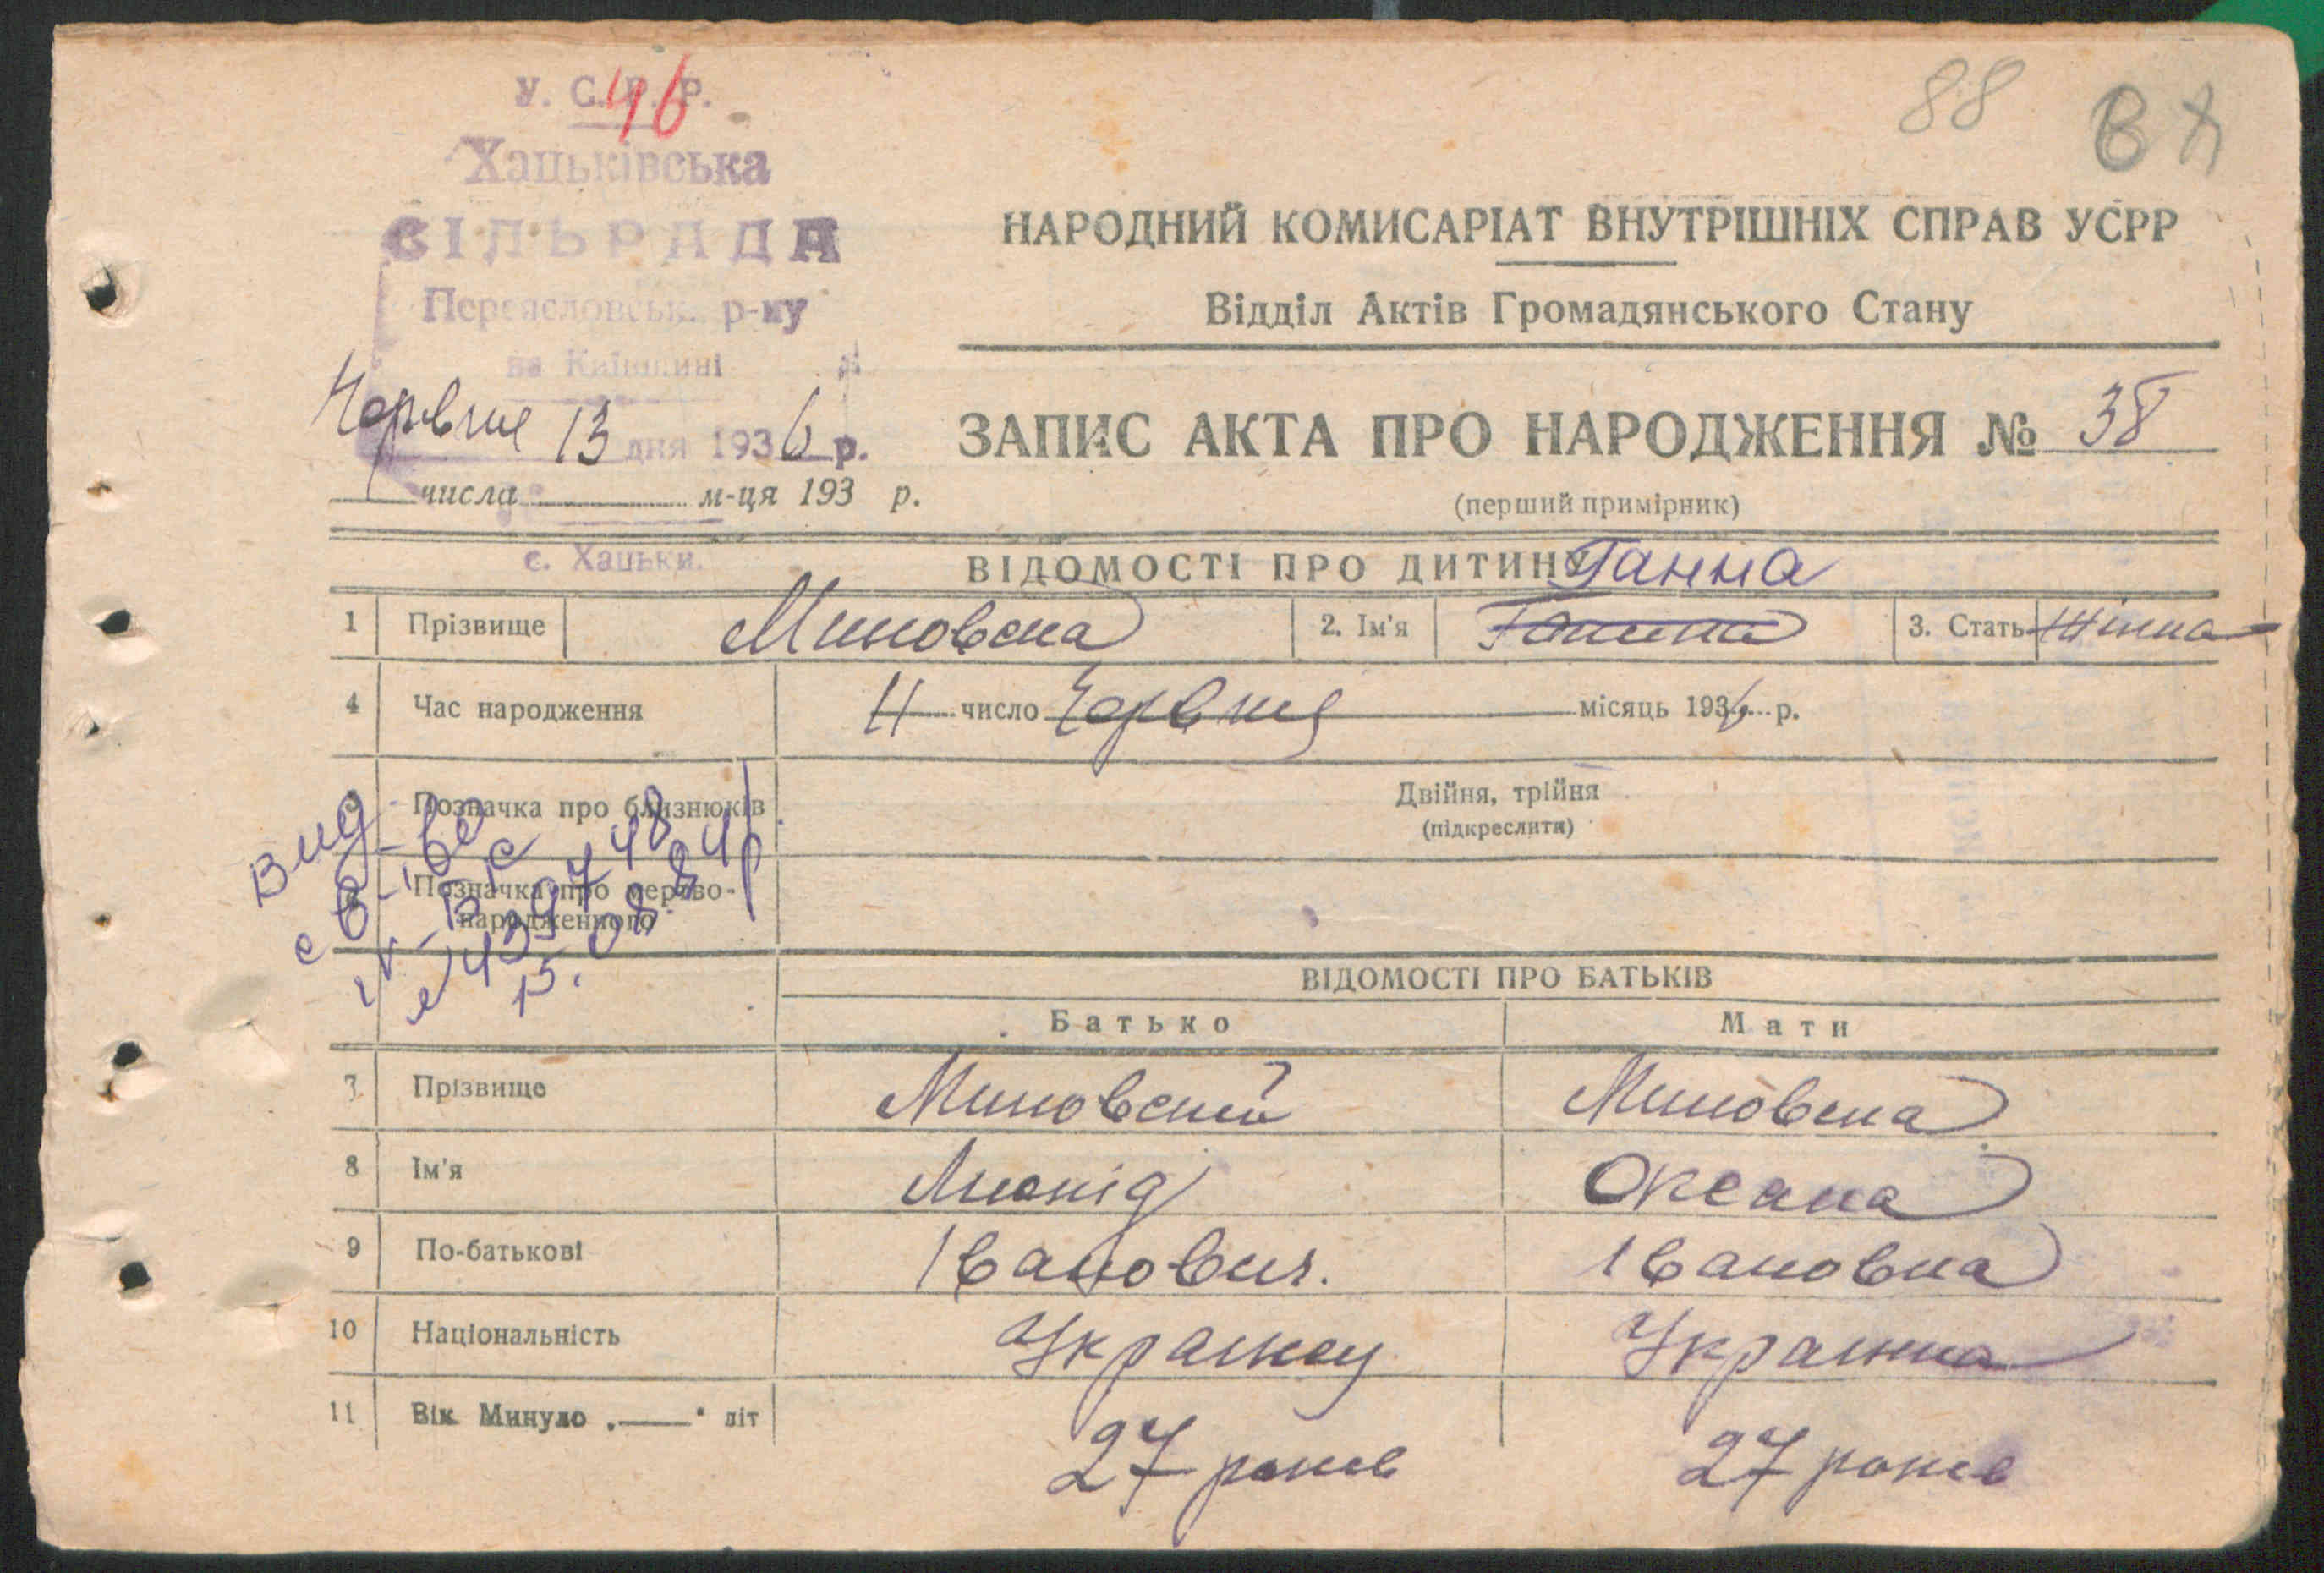 88
46
У. С. Р. Р.
Хацьківська
СІЛЬРАДА
Переясловськ. р-ну
на Київщині
Червня 13 дня 1936 р.
числа м-ця 193 р.
с. Хацьки.
НАРОДНИЙ КОМИСАРІАТ ВНУТРІШНІХ СПРАВ УСРР
Відділ Актів Громадянського Стану
ЗАПИС АКТА ПРО НАРОДЖЕННЯ № 38
(перший примірник)
ВІДОМОСТІ ПРО ДИТИНУ Ганна
1 Прізвище Миновска 2. Ім'я 3. Стать Жінка
4 Час народження 11 число Червня місяць 1936 р.
Позначка про близнюків Двійня, трійня
(підкреслити)
Позначка про мертво-
народженного
Вид. с в-во
15.08.84р
ВІДОМОСТІ ПРО БАТЬКІВ
Батько Мати
7 Прізвище Миновский Миновска
8 Ім'я Леонід Оксана
9 По-батькові Іванович. Івановна
10 Національність Украінец Украінка
11 Вік Минуло „ — " літ 27 років 27 років